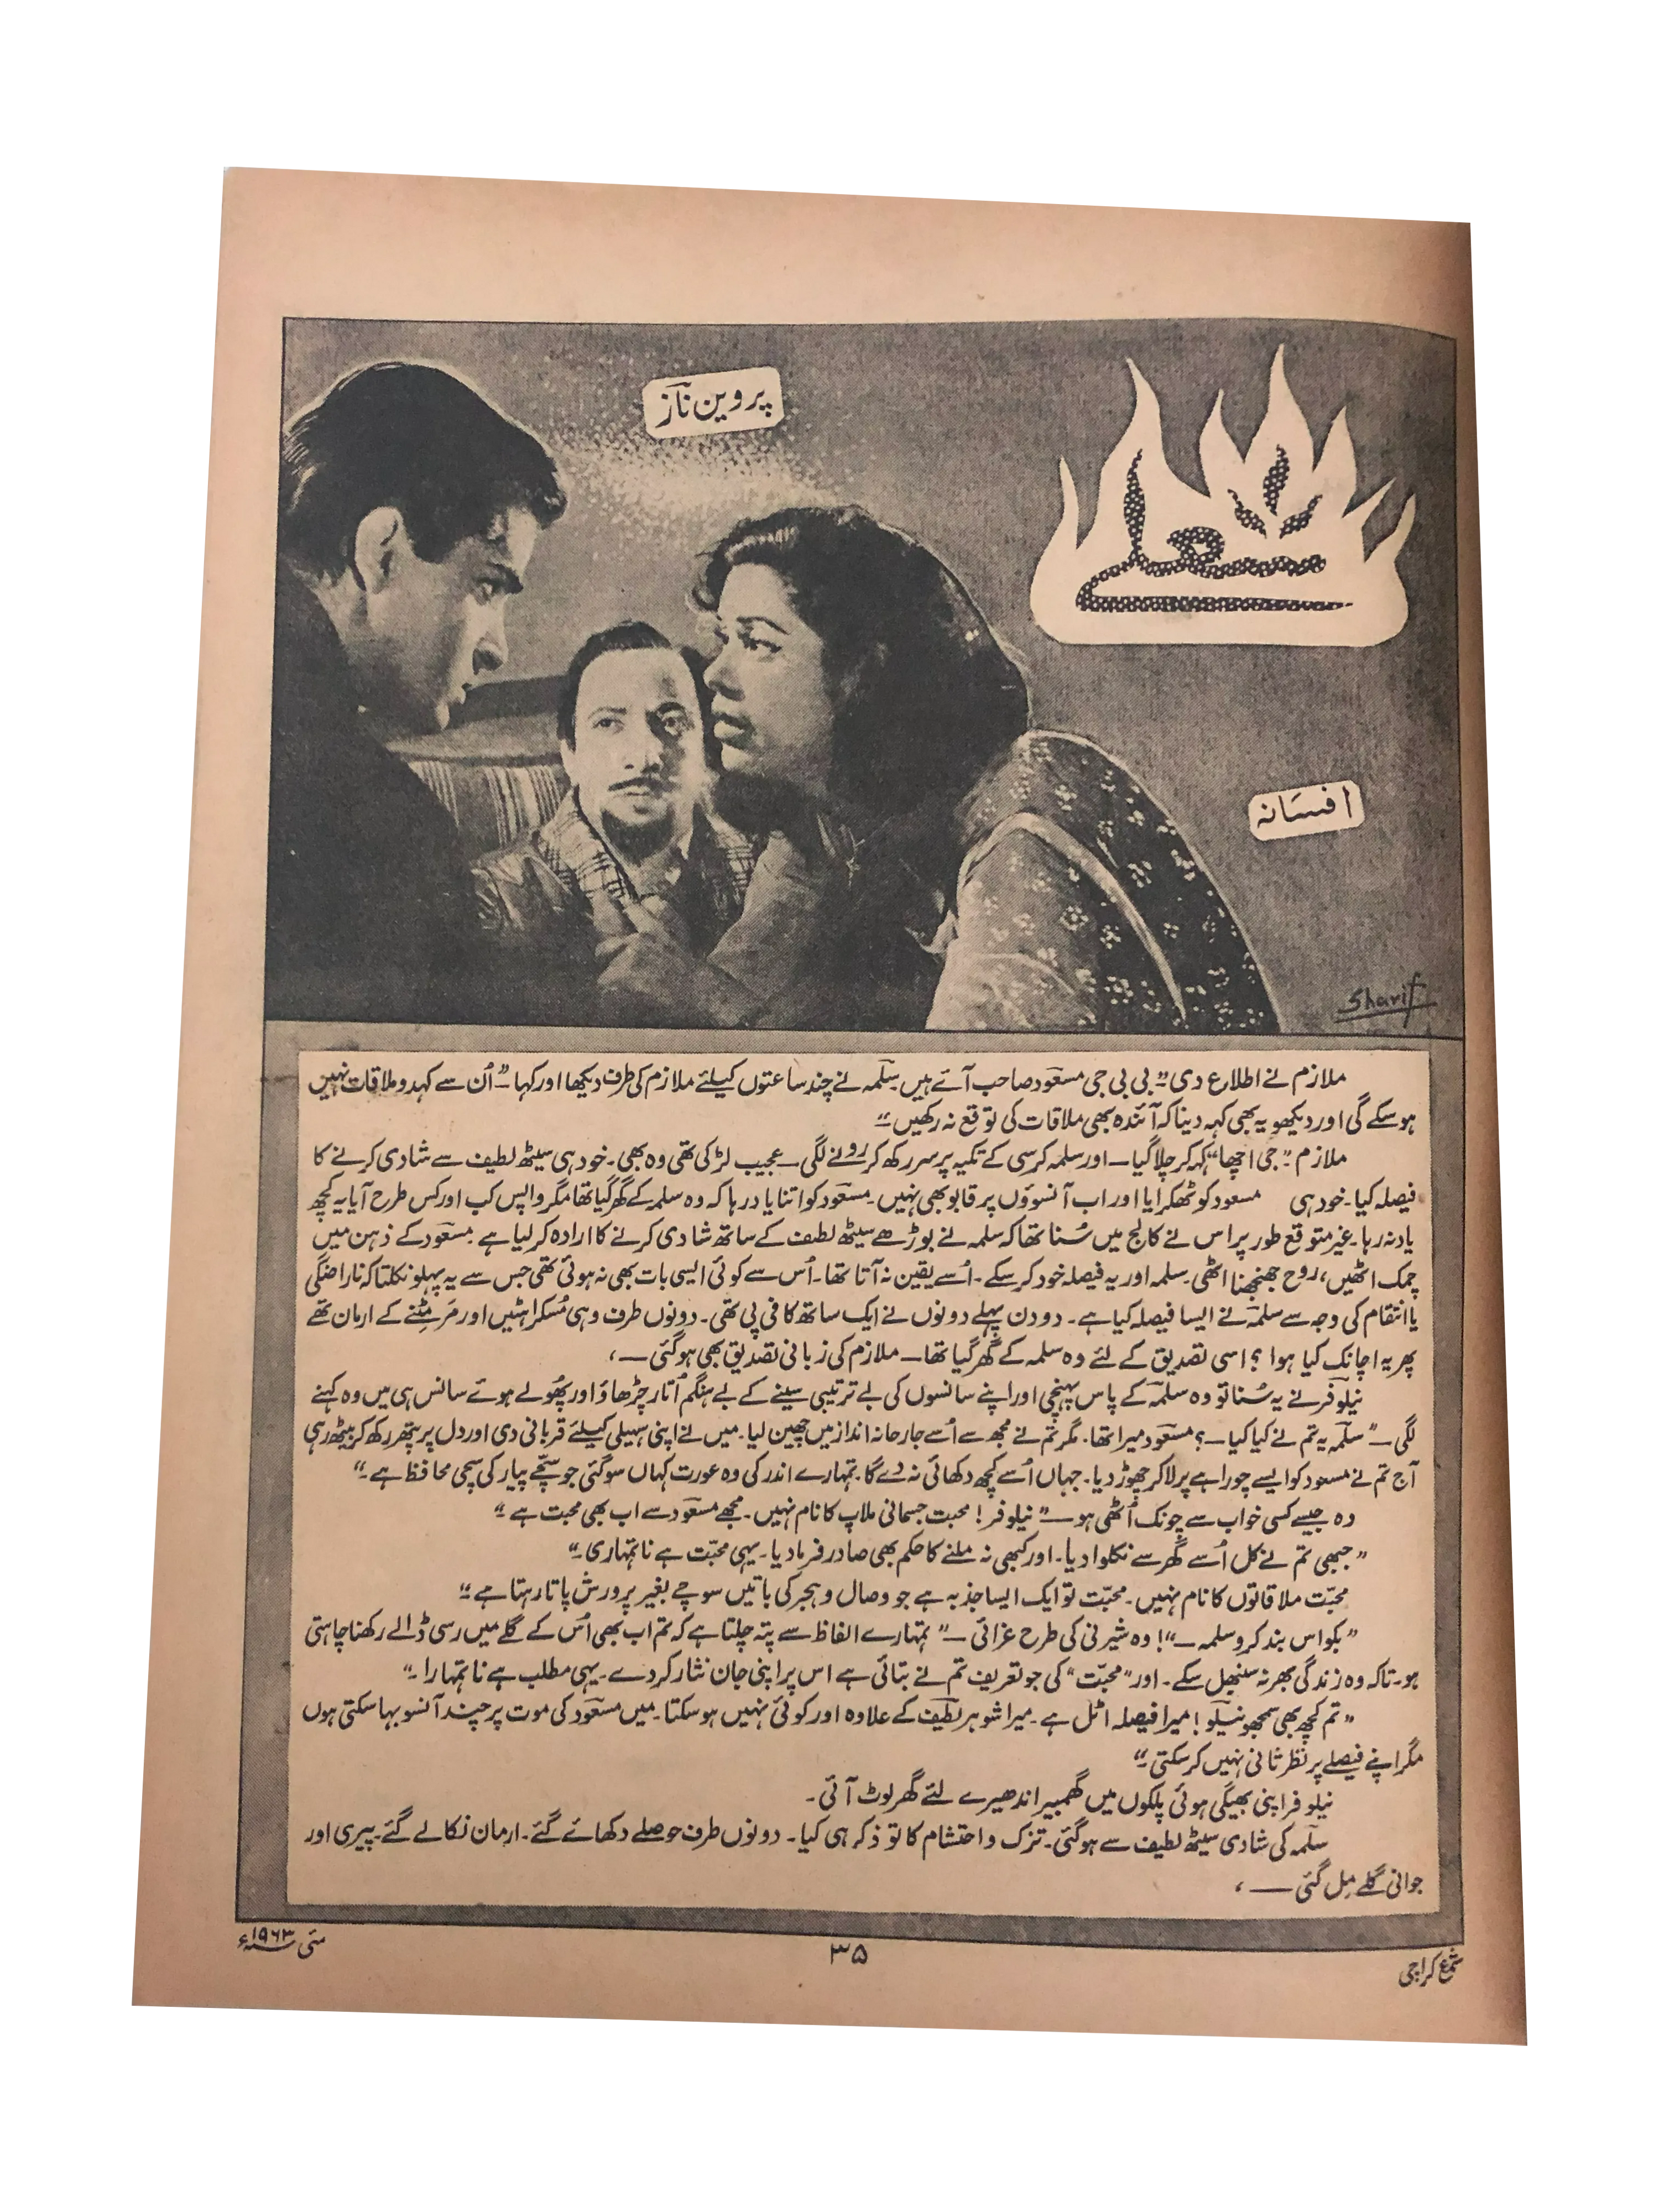 پروین نازؔ
شعلے
افسانہ
Sharif
ملازم نے اطلاع دی ”بی بی جی مسعود صاحب آئے ہیں۔ سلمہ نے چند ساعتوں کیلئے ملازم کی طرف دیکھا اور کہا — ”اُن سے کہدو ملاقات نہیں
ہو سکے گی اور دیکھو یہ بھی کہہ دینا کہ آئندہ بھی ملاقات کی توقع نہ رکھیں“
ملازم ”جی اچھا“ کہہ کر چلا گیا — اور سلمہ کرسی کے تکیہ پر سر رکھ کر رونے لگی — عجیب لڑکی تھی وہ بھی۔ خود ہی سیٹھ لطیف سے شادی کرنے کا
فیصلہ کیا۔ خود ہی مسعود کو ٹھکرایا اور اب آنسوؤں پر قابو بھی نہیں۔ مسعود کو اتنا یاد رہا کہ وہ سلمہ کے گھر گیا تھا مگر واپس کب اور کس طرح آیا یہ کچھ
یاد نہ رہا۔ غیر متوقع طور پر اس نے کالج میں سُنا تھا کہ سلمہ نے بوڑھے سیٹھ لطیف کے ساتھ شادی کرنے کا ارادہ کر لیا ہے۔ مسعود کے ذہن میں
چمک اٹھیں، روح جھنجھنا اٹھی۔ سلمہ اور یہ فیصلہ خود کر سکے۔ اُسے یقین نہ آتا تھا۔ اُس سے کوئی ایسی بات بھی نہ ہوئی تھی جس سے یہ پہلو نکلتا کہ ناراضگی
یا انتقام کی وجہ سے سلمہ نے ایسا فیصلہ کیا ہے۔ دو دن پہلے دونوں نے ایک ساتھ کافی پی تھی۔ دونوں طرف وہی مُسکراہٹیں اور مَر مِٹنے کے ارمان تھے
پھر یہ اچانک کیا ہوا؟ اسی تصدیق کے لئے وہ سلمہ کے گھر گیا تھا — ملازم کی زبانی تصدیق بھی ہو گئی —،
نیلوفر نے یہ سُنا تو وہ سلمہ کے پاس پہنچی اور اپنے سانسوں کی بے ترتیبی سینے کے بے ہنگم اُتار چڑھاؤ اور پھُولے ہوئے سانس ہی میں وہ کہنے
لگی — ”سلمہ یہ تم نے کیا کیا —؟ مسعود میرا تھا۔ مگر تم نے مجھ سے اُسے جارحانہ انداز میں چھین لیا۔ میں نے اپنی سہیلی کیلئے قربانی دی اور دل پر پتھر رکھ کر بیٹھ رہی
آج تم نے مسعود کو ایسے چوراہے پر لا کر چھوڑ دیا۔ جہاں اُسے کچھ دکھائی نہ دے گا۔ تمہارے اندر کی وہ عورت کہاں سو گئی جو سچّے پیار کی سچی محافظ ہے۔“
وہ جیسے کسی خواب سے چونک اُٹھی ہو — ”نیلوفر! محبت جسمانی ملاپ کا نام نہیں۔ مجھے مسعود سے اب بھی محبت ہے“
”جبھی تم نے کل اُسے گھر سے نکلوا دیا۔ اور کبھی نہ ملنے کا حکم بھی صادر فرما دیا۔ یہی محبّت ہے نا تمہاری۔“
محبّت ملاقاتوں کا نام نہیں۔ محبّت تو ایک ایسا جذبہ ہے جو وصال و ہجر کی باتیں سوچے بغیر پرورش پاتا رہتا ہے“
”بکواس بند کرو سلمہ —“! وہ شیرنی کی طرح غرائی — ”تمہارے الفاظ سے پتہ چلتا ہے کہ تم اب بھی اُس کے گلے میں رسی ڈالے رکھنا چاہتی
ہو۔ تاکہ وہ زندگی بھر نہ سنبھل سکے۔ اور ”محبّت“ کی جو تعریف تم نے بتائی ہے اس پر اپنی جان نثار کر دے۔ یہی مطلب ہے نا تمہارا۔“
”تم کچھ بھی سمجھو نیلو! میرا فیصلہ اٹل ہے۔ میرا شوہر لطیف کے علاوہ اور کوئی نہیں ہو سکتا۔ میں مسعود کی موت پر چند آنسو بہا سکتی ہوں
مگر اپنے فیصلے پر نظر ثانی نہیں کر سکتی۔“
نیلوفر اپنی بھیگی ہوئی پلکوں میں گھمبیر اندھیرے لئے گھر لوٹ آئی۔
سلمہ کی شادی سیٹھ لطیف سے ہو گئی۔ تزک و احتشام کا تو ذکر ہی کیا۔ دونوں طرف حوصلے دکھائے گئے۔ ارمان نکالے گئے۔ پیری اور
جوانی گلے مِل گئی —،
شمع کراچی
۳۵
مئی ۱۹۶۳ء